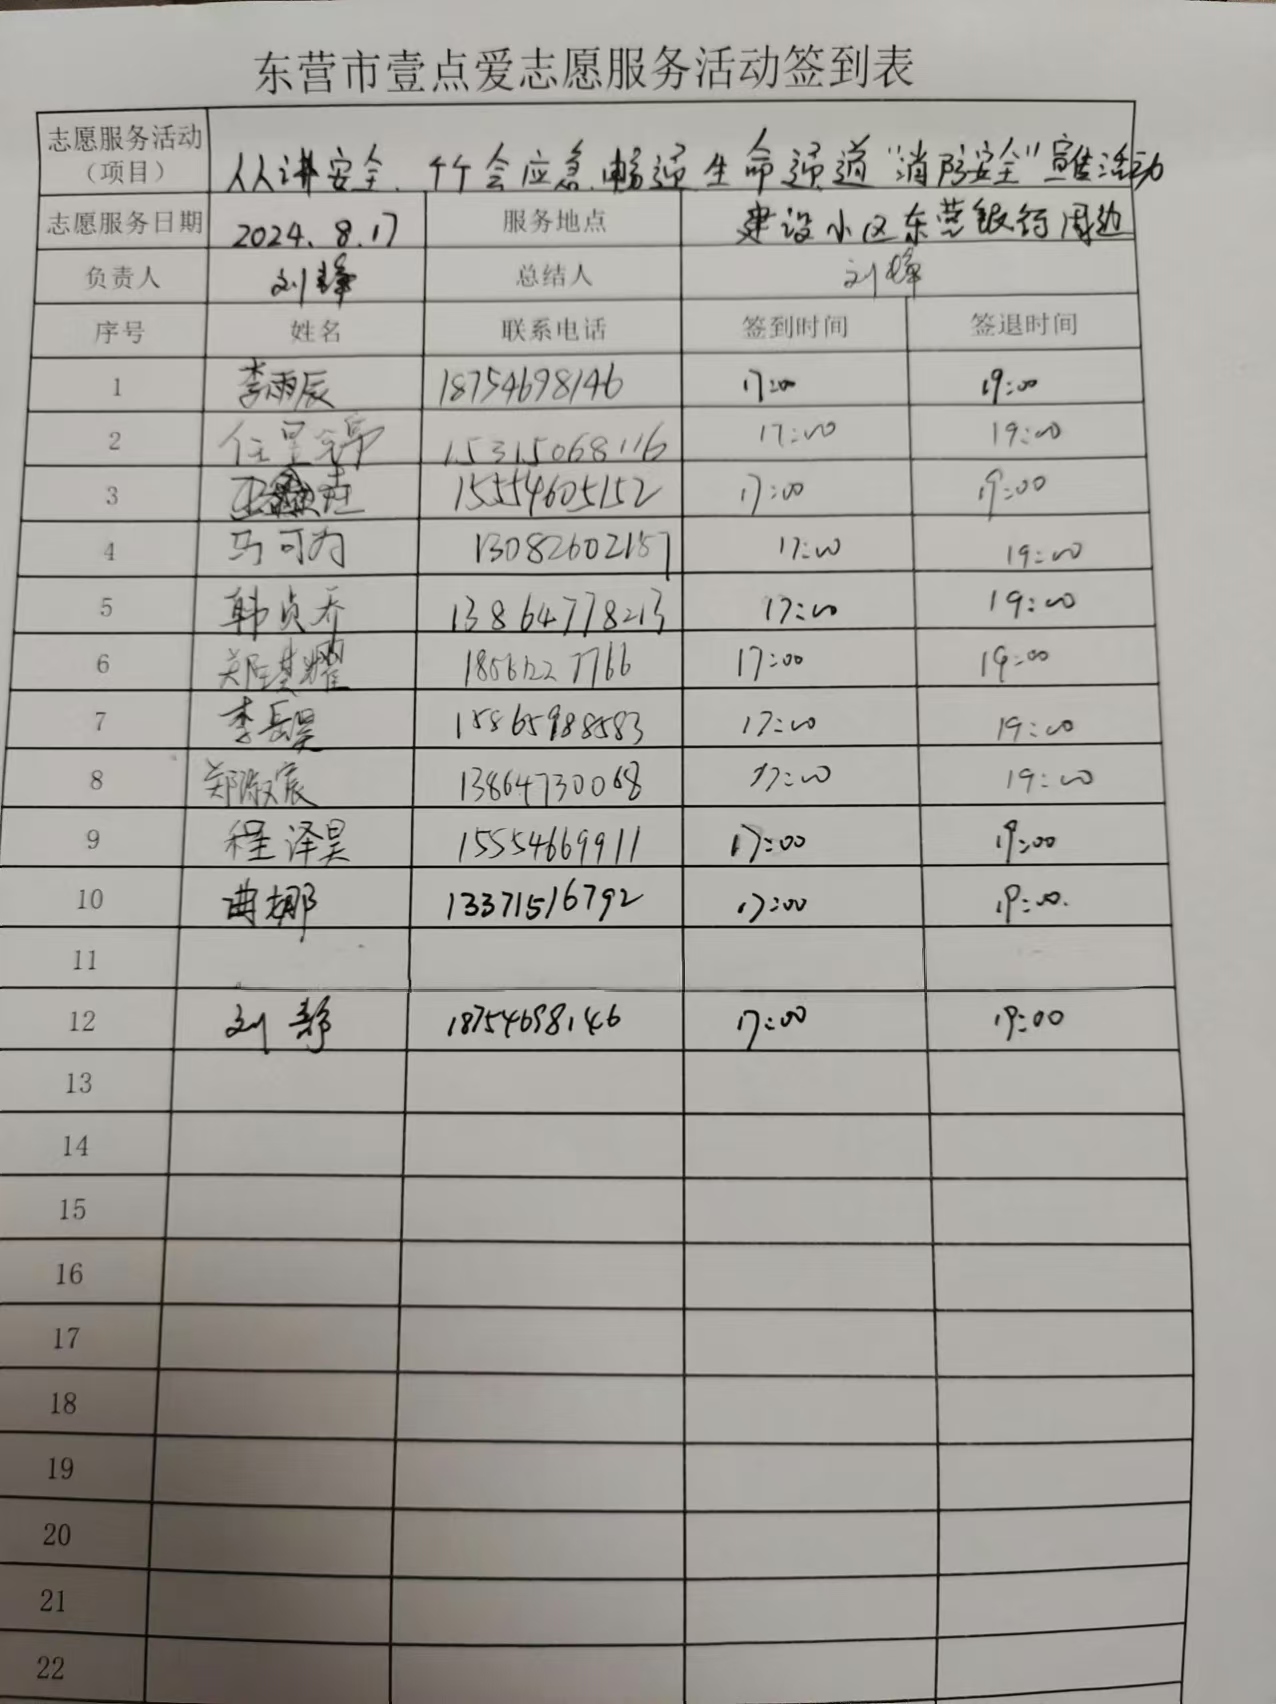 东营市壹点爱志愿服务活动签到表
志愿服务活动（项目） 人人讲安全、个个会应急、畅通生命通道"消防安全"宣传活动
志愿服务日期 2024.8.17 服务地点 建设小区东营银行周边
负责人 刘静 总结人 刘静
序号 姓名 联系电话 签到时间 签退时间
1 李雨辰 18754698146 17:00 19:00
2 任 15315068116 17:00 19:00
3 15554605152 17:00 19:00
4 马可为 13082602157 17:00 19:00
5 韩贞乔 13864778213 17:00 19:00
6 郑 耀 17:00 19:00
7 李岳昊 15865988583 17:00 19:00
8 郑淑宸 13864730068 17:00 19:00
9 程泽昊 15554669911 17:00 19:00
10 曲娜 13371516792 17:00 19:00.
11
12 刘静 18754698146 17:00 19:00
13
14
15
16
17
18
19
20
21
22